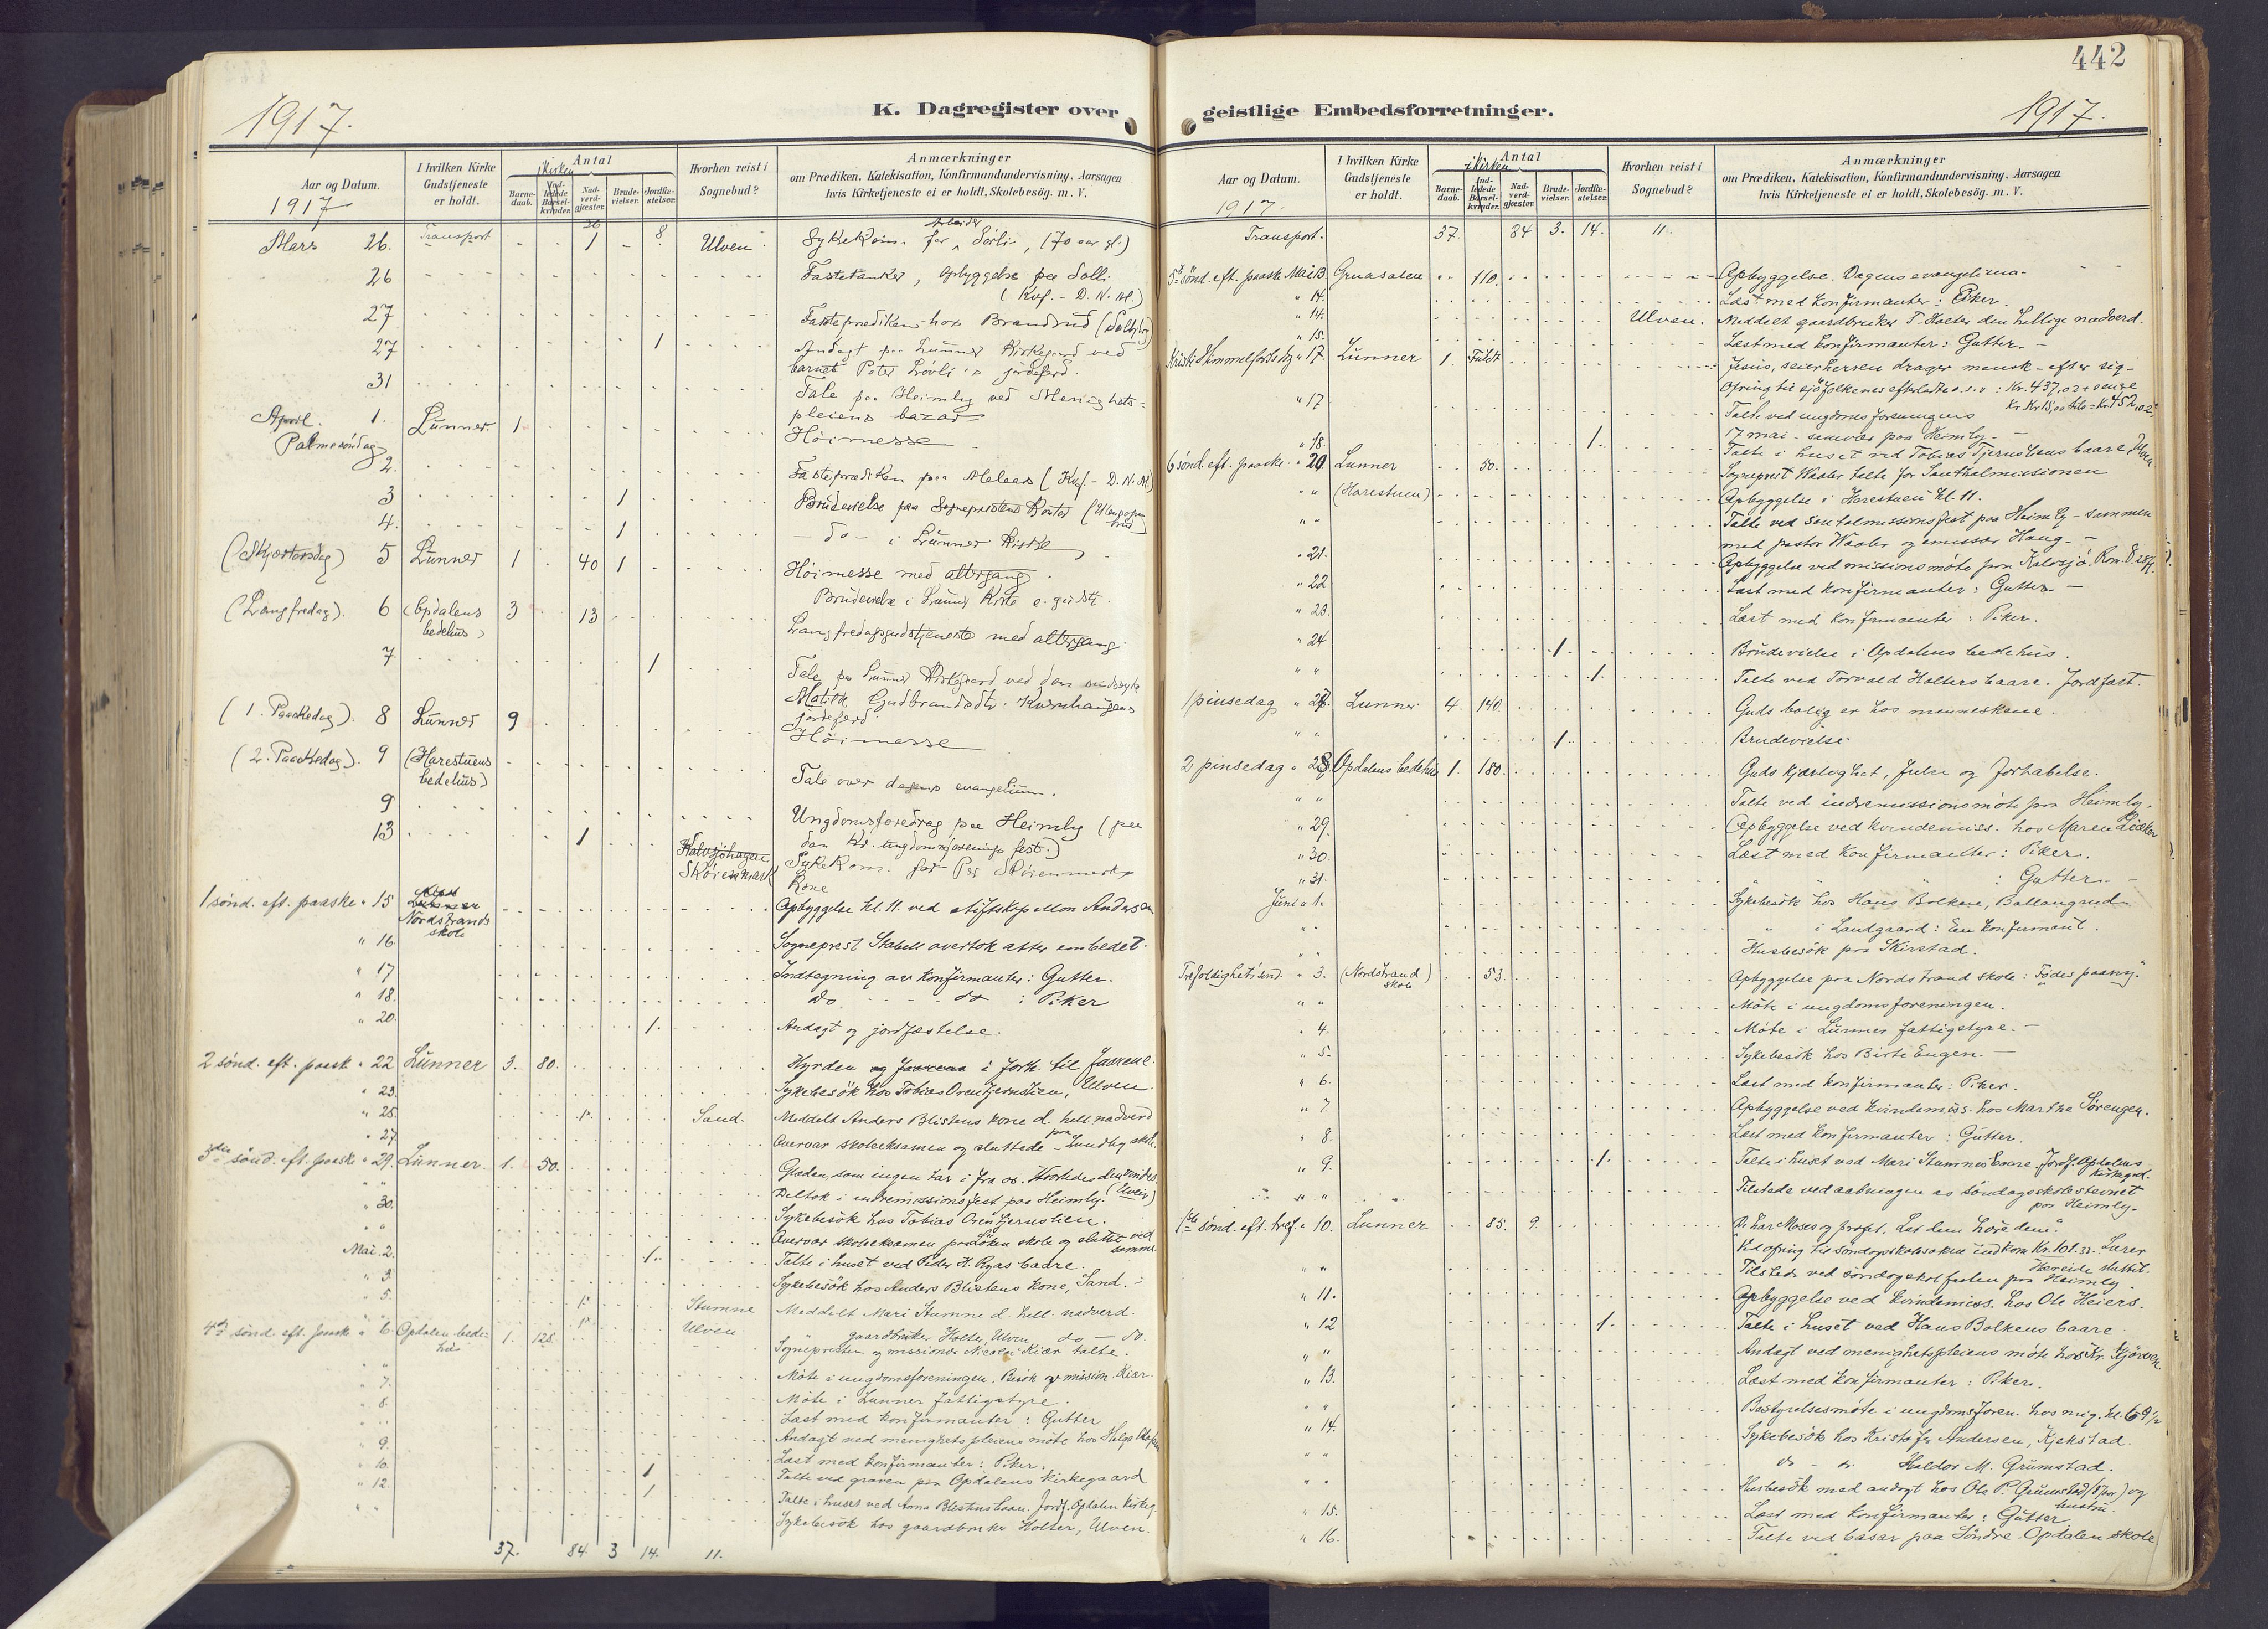 442
1917.
K. Dagregister over
geistlige Embedsforretninger.
1917.
Aar og Datum.
1917
I hvilken Kirke Gudstjeneste er holdt.
Antal
i kirken
Barnedaab.
Indledede Barselkvinder.
Nadverdgjæster.
Brudevielser.
Jordfæstelser.
Hvorhen reist i Sognebud?
Anmærkninger
om Prædiken, Katekisation, Konfirmandundervisning, Aarsagen
hvis Kirketjeneste ei er holdt, Skolebesög. m. V.
Mars 26. Transport 26 1 8 Ulven Sykekom. for Arbeider (70 aar gl.)
26 Fastetanker, opbyggelse paa Solli.
27 Fasteprædiken hos Brandrud
27 1 Andagt paa Lunner Kirkegaard ved
barnet Peter jordeferd.
31 Tale paa Heimly ved Menighets=
pleiens bazar
April. 1. Lunner. 1 Höimesse
Palmesöndag
2. Fasteprædiken paa
3 1 Brudevielse paa Sogneprestens Kontor
4. 1 - do - i Lunner Kirke
(Skjærtorsdag) 5 Lunner 1 40 1 Höimesse med altergang.
Brudevielse i Lunner Kirke e. gudstj.
(Langfredag). 6 (Opdalens bedehus) 3 13 Langfredagsgudstjeneste med altergang.
7 1 Tale paa Lunner Kirkegaard ved den sindssyke
Matilde Gudbrandsdtr.
jordeferd.
(1. Paaskedag). 8 Lunner 9 Höimesse
(2. Paaskedag). 9 (Harestuens bedehus) Tale over dagens evangelium.
9 Ungdomsforedrag paa Heimly (paa
den kr. ungdomsforenings fest.)
13 1 Kalvsjöhagen Sköienmark Sykekom. for Per Skörenmarks
Kone
1 sönd. eft. paaske " 15 Lunner Nordstrands skole Opbyggelse kl. 11. ved stiftskapellan Andersen
" 16 Sogneprest Stabell overtok atter embedet.
" 17 Indtegning av konfirmanter: Gutter.
" 18. do do : Piker
" 20. 1. Andagt og jordfæstelse.
2 sönd. eft. paask " 22 Lunner 3. 80. Hyrden og faarene i forh. til faarene.
" 23. Sykebesök hos Tobias Orentjernslien, Ulven.
" 25. 1. Sand. Meddelt Anders Blistens kone d. hell. nadverd
" 27. Overvar skoleeksamen og sluttede paa Lundby skole.
3dje sönd. eft. paaske " 29. Lunner. 1. 50. Glæden, som ingen tar i fra os. Hvorledes den vindes.
" " Deltok i indremissionsfest paa Heimly. (Ulven)
" 30. Sykebesök hos Tobias Orentjernslien.
" " Overvar skoleeksamen paa Löken skole og sluttet ved samme
Mai. 2. 1. Talte i huset ved Peder H. Ryas baare.
" 3. Sykebesök hos Anders Blistens kone, Sand.
" 5. 1. Stumne Meddelt Mari Stumne d. hell. nadverd.
" " 1. Ulven " gaardbruker Holter, Ulven, do - do.
4de sönd. eft. paask " 6. Opdalen bedehus 1. 125. Sognepresten og missionær Nicolai Kiær talte.
" " Möte i ungdomsforeningen. Besök av mission. Kiær.
" 7. Möte i Lunner fattigstyre.
" 8. Læst med konfirmanter: Gutter
" " Andagt ved menighetspleiens möte hos Helga
" 9. Læst med konfirmanter: Piker.
" 10. 1 Talte ved graven paa Opdalens kirkegaard
" 12. 1 Talte i huset ved Anna Blistens baare. Jordf. Opdalen kirkeg.
" " Sykebesök hos gaardbruker Holter, Ulven.
37. 84 3 14. 11.
Aar og Datum.
1917.
I hvilken Kirke Gudstjeneste er holdt.
Antal
i kirken
Barnedaab.
Indledede Barselkvinder.
Nadverdgjæster.
Brudevielser.
Jordfæstelser.
Hvorhen reist i Sognebud?
Anmærkninger
om Prædiken, Katekisation, Konfirmandundervisning, Aarsagen
hvis Kirketjeneste ei er holdt, Skolebesög. m. V.
Transport. 37. 84 3. 14. 11.
5te sönd. eft. paask Mai 13 Gruasalen 110. Opbyggelse. Dagens evangelium.
" 14. Læst med konfirmanter: Piker.
" 14. Ulven. Meddelt gaardbruker T. Holter den hellige nadverd.
" 15. Læst med konfirmanter: Gutter.
Kristi Himmelfartsdag " 17 Lunner 1. Fuldt Jesus, seierherren drager mensk. efter sig.
Ofring til sjöfolkenes efterladte
Kr. 437,02
" 17 Talte ved ungdomsforeningens
17 mai - samvær paa Heimly.
" 18. 1. Talte i huset ved Tobias Tjernsliens baare, Ulven
6 sönd. eft. paaske. " 20 Lunner 50. Sogneprest Waaler talte for Santhalmissionen
" " (Harestuen) Opbyggelse i Harestuen kl. 11.
" " Talte ved Santalmissionsfest paa Heimly - sammen
med pastor Waaler og emissær Haug.
" 21. Opbyggelse ved missionsmöte paa Kalvsjö. Rom. 8. 28
" 22 Læst med konfirmanter: Gutter.
" 23. Læst med konfirmanter: Piker.
" 24 1. Brudevielse i Opdalens bedehus.
" " 1. Talte ved Torvald Holters baare. Jordfæst.
1 pinsedag " 27. Lunner 4. 140. Guds bolig er hos menneskene.
" " 1. Brudevielse
2 pinsedag " 28. Opdalens bedehus 1. 180. Guds kjærlighet, julen og fortabelse.
" " Talte ved indremissionsmöte paa Heimly.
" 29. Opbyggelse ved kvindemiss. hos Maren
" 30. Læst med konfirmanter: Piker.
" 31. " " " : Gutter.
Juni " 1. Sykebesök hos Hans Bolken, Ballangrud
" " " i Landgaard: En konfirmant.
" " Husbesök paa Skirstad.
Trefoldighetssönd. " 3. (Nordstrand skole) 53. Opbyggelse paa Nordstrand skole: "Födes paany."
" " Möte i ungdomsforeningen.
" 4. Möte i Lunner fattigstyre.
" 5. Sykebesök hos Birte Engen.
" 6. Læst med konfirmanter: Piker.
" 7 Opbyggelse ved kvindemiss. hos Marthe Sörengen.
" 8. Læst med konfirmanter: Gutter.
" 9. 1. Talte i huset ved Mari Stumnes baare. Jordf. Opdalens kirkegrd.
" " Tilstede ved aabningen av söndagsskolestevnet
paa Heimly.
1ste sönd. eft. tref. " 10. Lunner 85. 9. De har Moses og profet. Lat dem höre dem.
Ved ofring til söndagsskolesaken indkom Kr. 101.33. Lærer
" " Tilstede ved söndagsskolefesten paa Heimly.
" 11. Opbyggelse ved kvindemiss. hos Ole Heiers.
" 12 1. Talte i huset ved Hans Bolkens baare
" " Andagt ved menighetspleiens möte hos Kr.
" 13. Læst med konfirmanter: Piker.
" " Bestyrelsesmöte i ungdomsforen. hos mig. kl.
" 14. Sykebesök hos Kristofer Andersen, Kjekstad.
" " do - do Haldor M. Grumstad.
" " Husbesök med andagt hos Ole P. Grumstad og
hustru.
" 15. Læst med konfirmanter: Gutter
" 16. Talte ved basar paa Söndre Opdalen skole